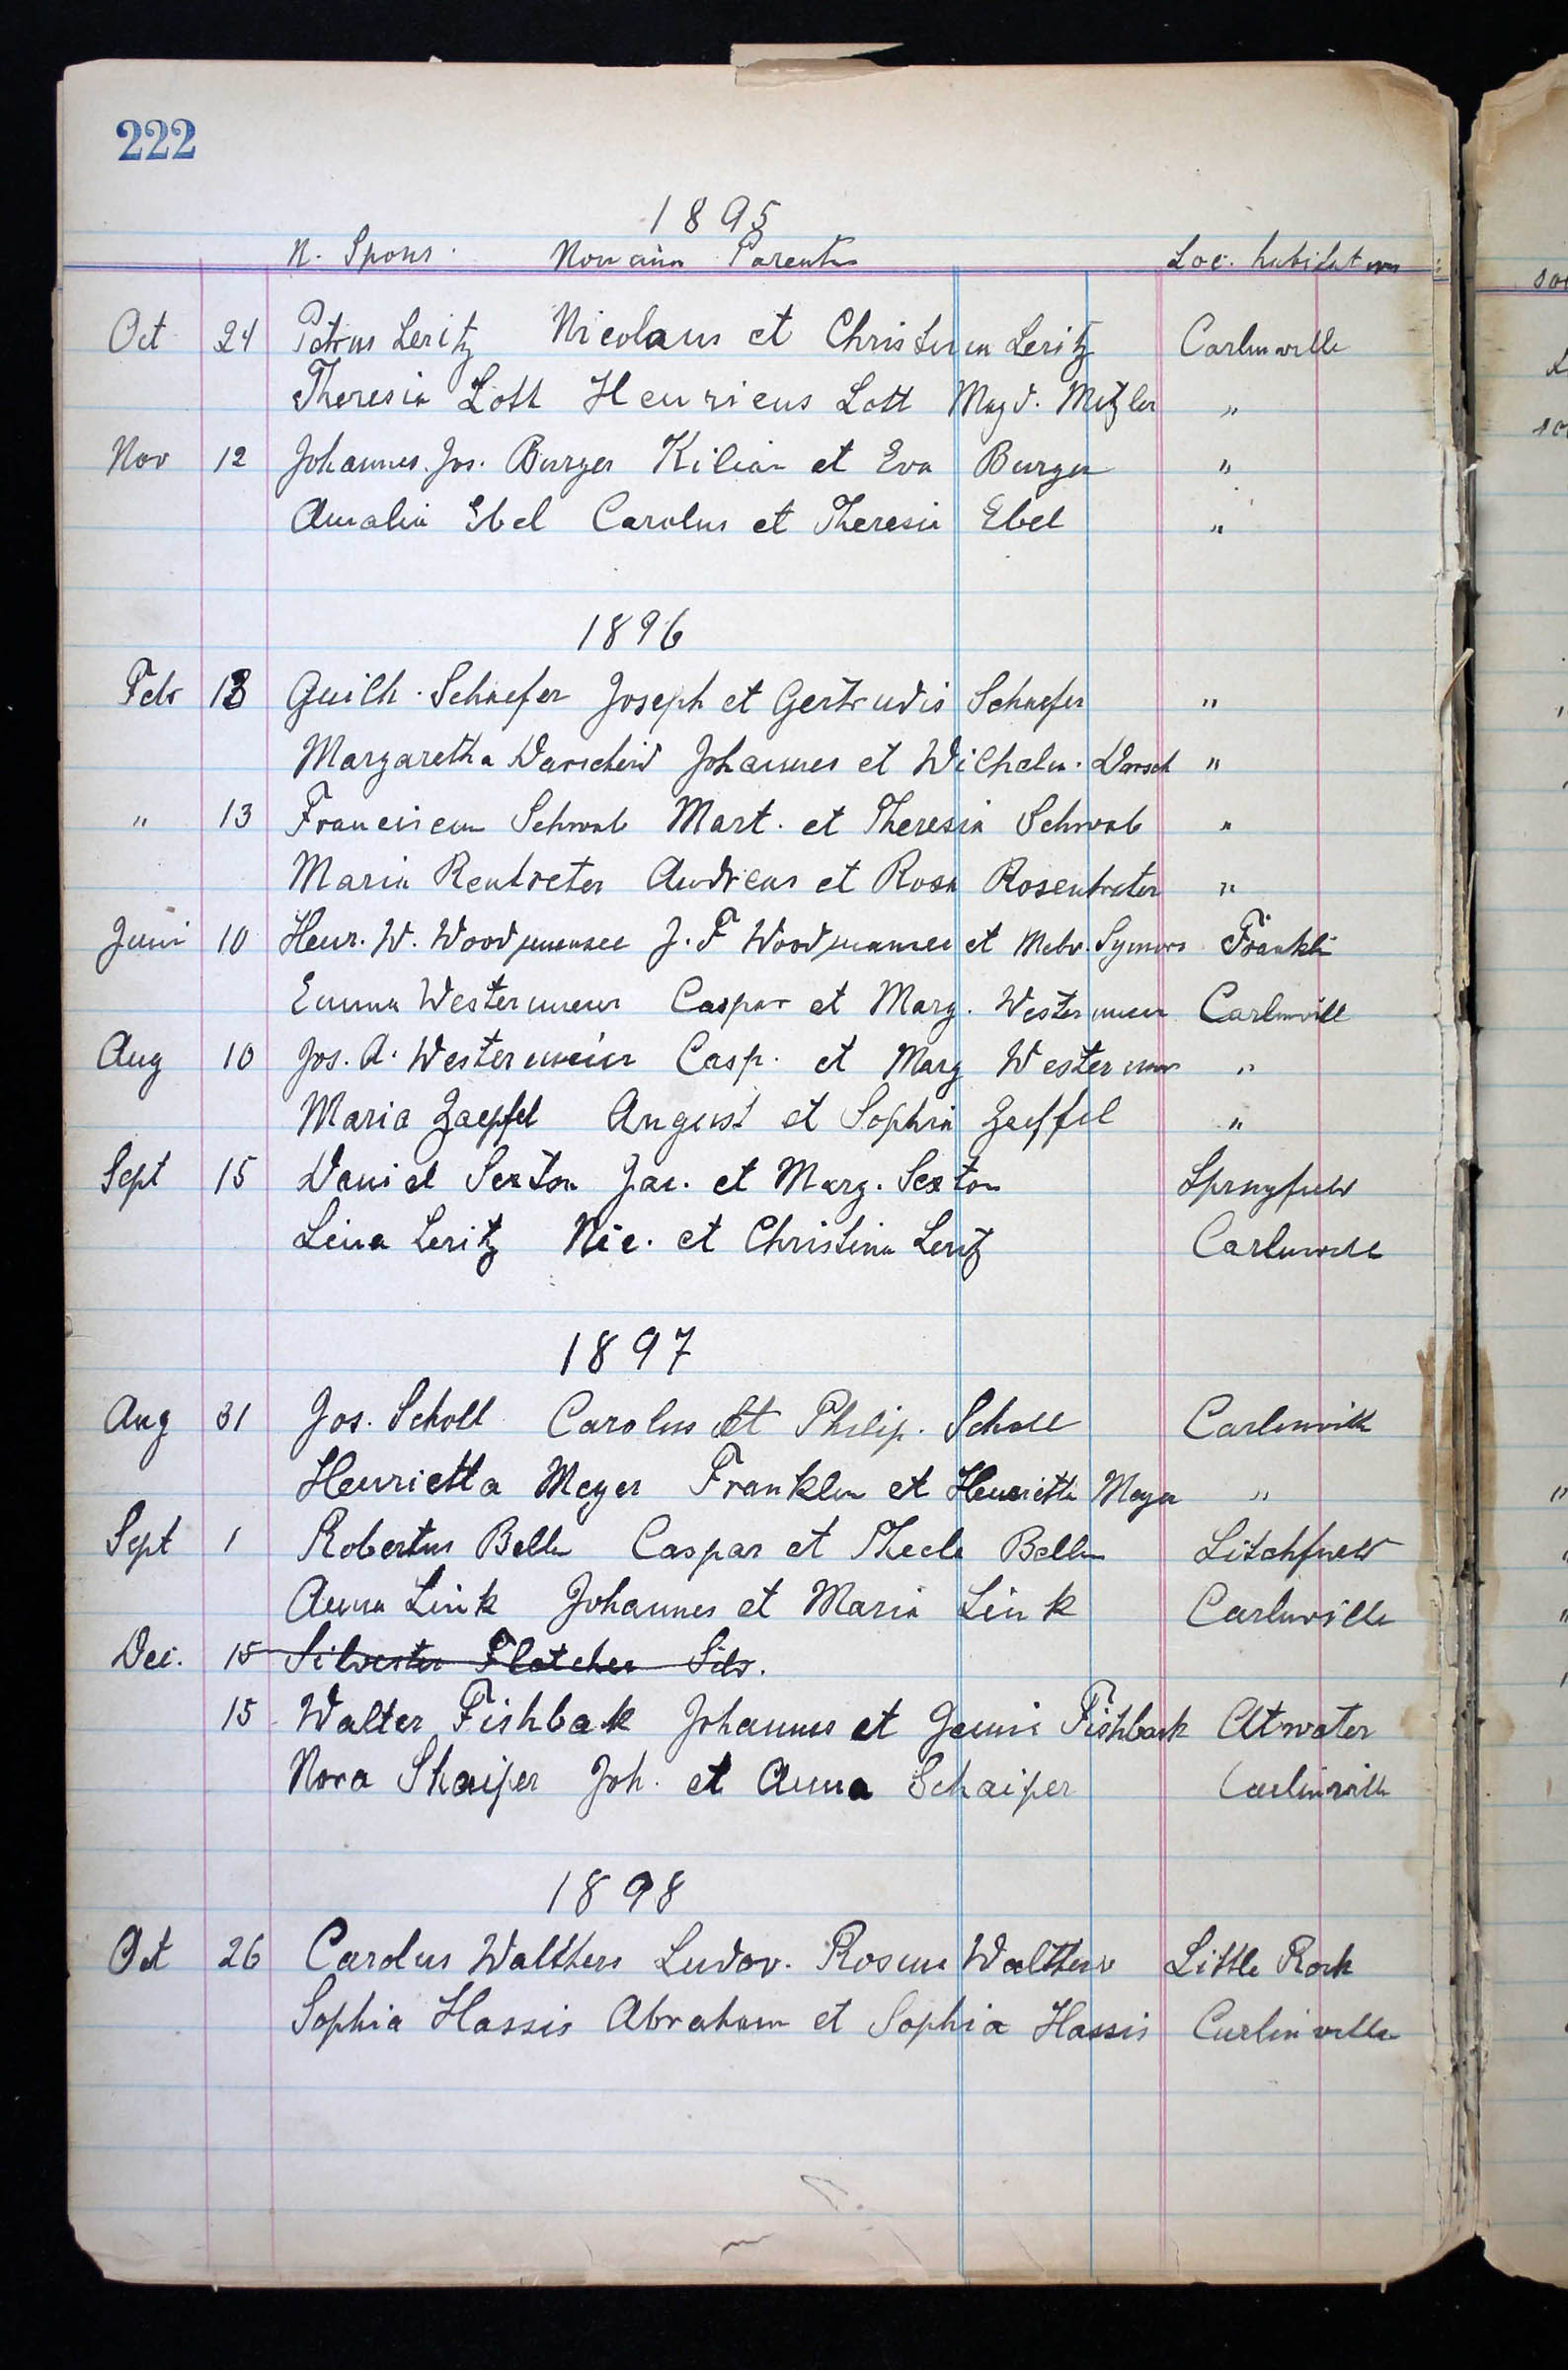 222
1895
N. Spons. Nomina Parent. Loc. habitat
Oct 24 Petrus Leritz Nicolaus et Christina Leritz Carlinville
Theresia Lott Henricus Lott Magd. Metzler "
Nov 12 Johannes Jos. Burger Kilian et Eva Burger "
Amalia Ebel Carolus et Theresia Ebel "
1896
Febr 13 Guilh. Schaefer Joseph et Gertrudis Schaefer "
Margaretha Darscheid Johannes et Wilhelm. Darsch "
" 13 Franciscum Schwab Mart. et Theresia Schwab "
Maria Rentreter Andreas et Rosa Rosentreter "
Juni 10 Henr. W. Woodmansee J. F Woodmansee et Symors Frankli
Emma Westermeier Caspar et Marg. Westermeier Carlinvill
Aug 10 Jos. A. Westermeier Casp. et Marg Westermer "
Maria Zaepfel August et Sophia Zaepfel "
Sept 15 Daniel Sexton Jac. et Marg. Sexton Springfield
Lena Leritz Nic. et Christina Leritz Carlinville
1897
Aug 31 Jos. Scholl Carolus et Philip. Scholl Carlinville
Henrietta Meyer Franklin et Henriette Meyer "
Sept 1 Robertus Beller Caspar et Thecla Beller Litchfield
Anna Link Johannes et Maria Link Carlinville
Dec. 15 Silvester Fletcher Sils.
15 Walter Fishbak Johannes et Jenni Fishback Atwater
Nora Shaiper Joh. et Anna Schaiper Carlinville
1898
Oct 26 Carolus Walthers Ludov. Rosina Walthers Little Rock
Sophia Hassis Abraham et Sophia Hassis Carlinville